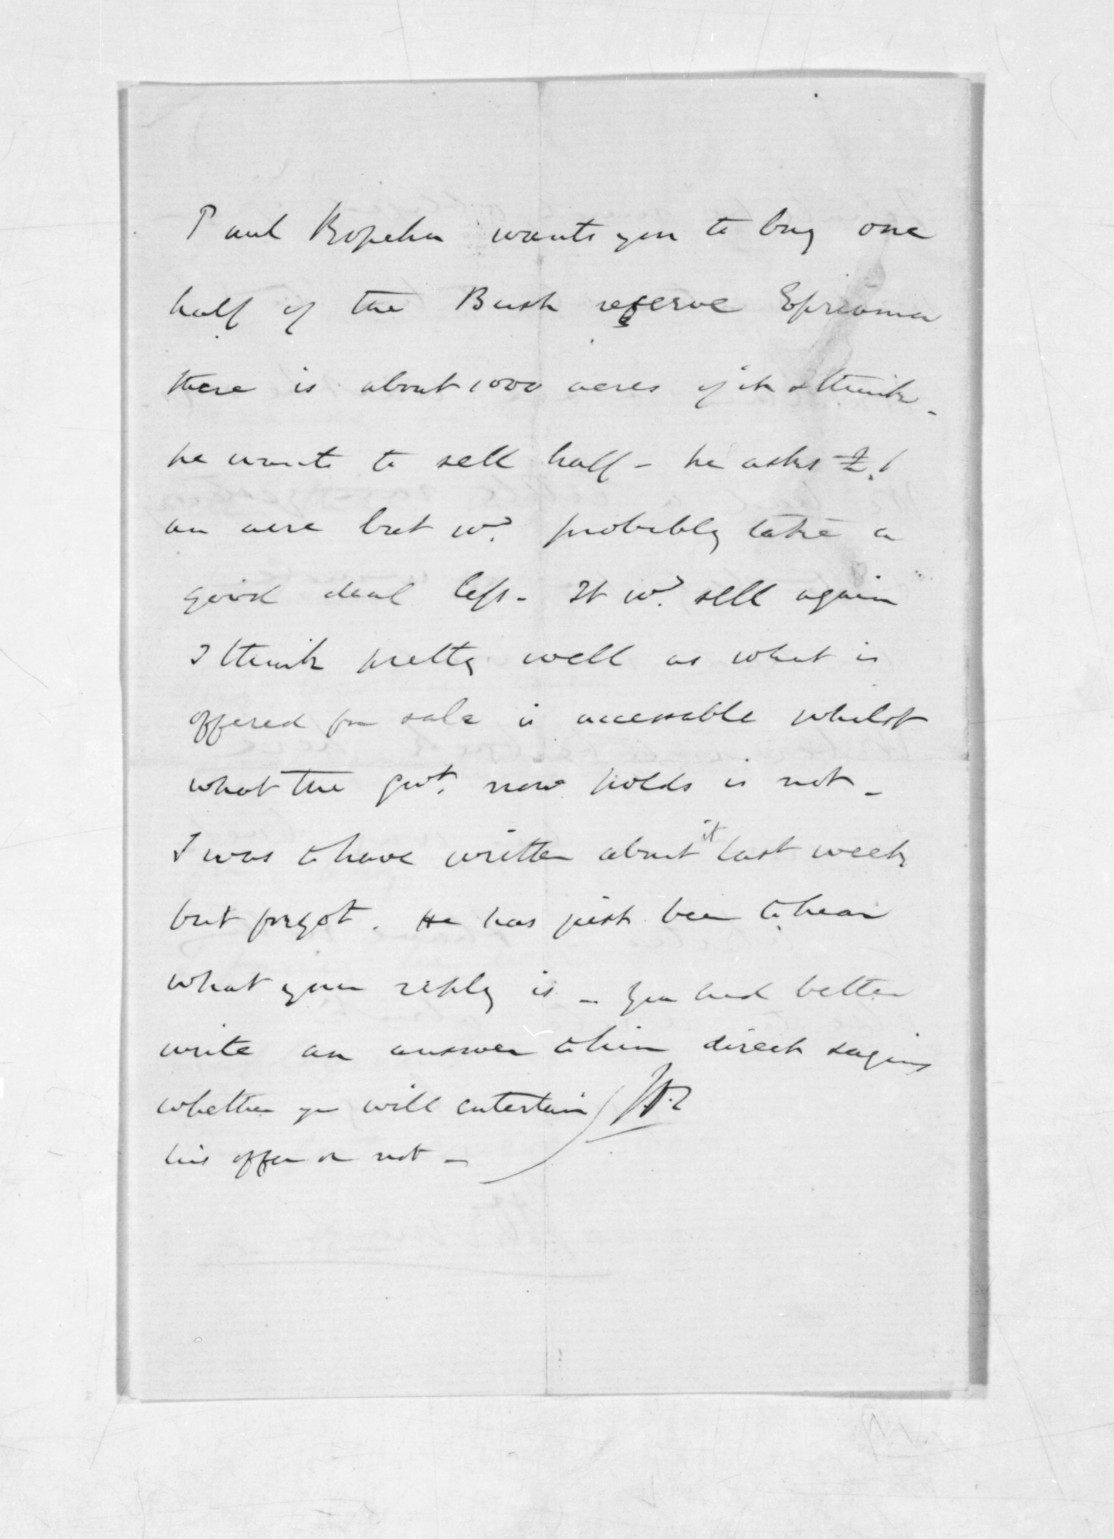 Paul Bopeha wants you to buy one
half of the Bush reserve
there is about 1000 acres of it I think -
he wants to sell half - he asks £1
an acre but wd. probably take a
good deal less - It wd. sell again
I think pretty well as what is
offered for sale is accessable whilst
what the Govt. now holds is not -
I was to have written about it last week
but forgot. He has just been to hear
what your reply is - You had better
write an answer to him direct saying
whether you will entertain
his offer or not -